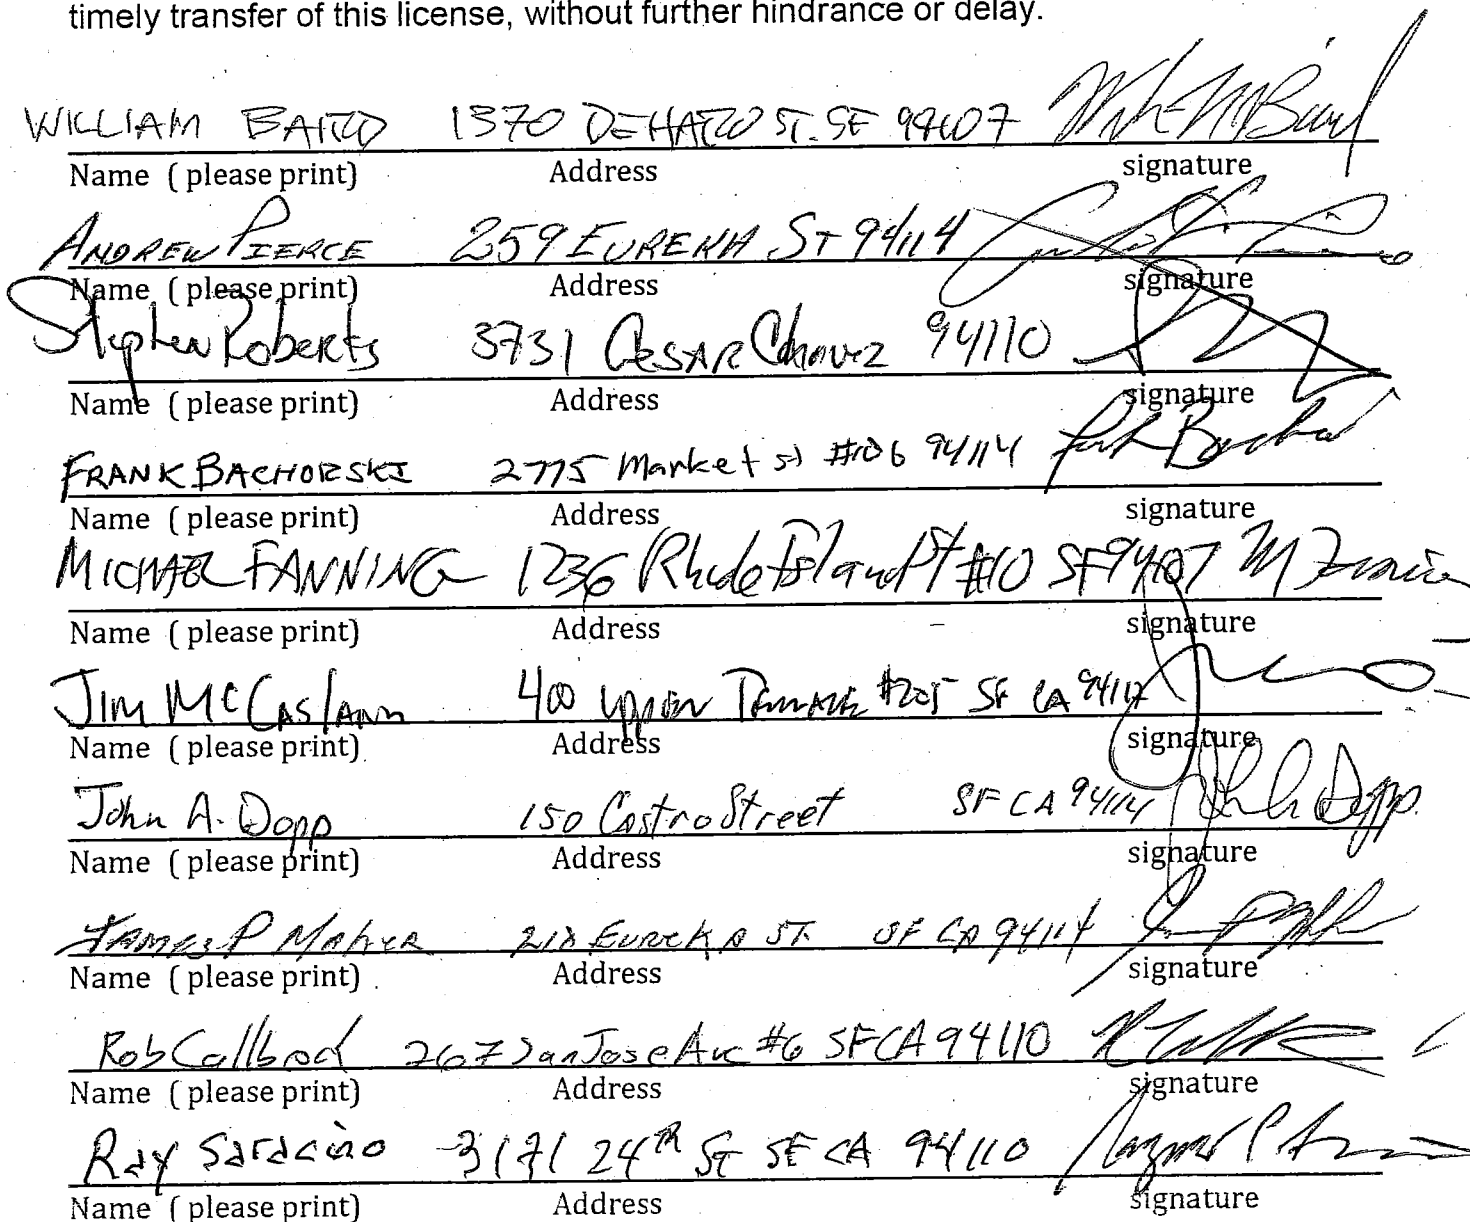 timely transfer of this license, without further hindrance or delay.
WILLIAM BAIRD 1370 DEHARO ST. SF 94107
Name ( please print) Address signature
ANDREW PIERCE 259 EUREKA ST 94114
Name ( please print) Address signature
Stephen Roberts 3731 CESAR Chavez 94110
Name ( please print) Address signature
FRANK BACHORSKI 2775 Market st #106 94114
Name ( please print) Address signature
MICHAEL FANNING 1236 Rhode Island St #10 SF 94107 M Fanning
Name ( please print) Address signature
JIM McCASlAnn 400 upper Terrace #205 SF CA 94117
Name ( please print) Address signature
John A. Dopp 150 Castro Street SF CA 94114 John A Dopp.
Name ( please print) Address signature
JAMES P Maher 218 EUREKA ST. SF CA 94114
Name ( please print) Address signature
Rob Callbrod 267 San Jose Ave #6 SF CA 94110
Name ( please print) Address signature
Ray Saracino 3171 24th St SF CA 94110
Name ( please print) Address signature